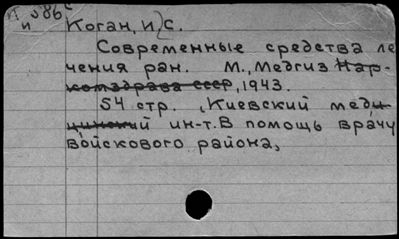 И 386
и
Коган, И.С.
Современные средства ле
чения ран. М., Медгиз Нар-
комздрава СССР, 1943.
54 стр. (Киевский меди
цинский ин-т. В помощь врачу
войскового района)